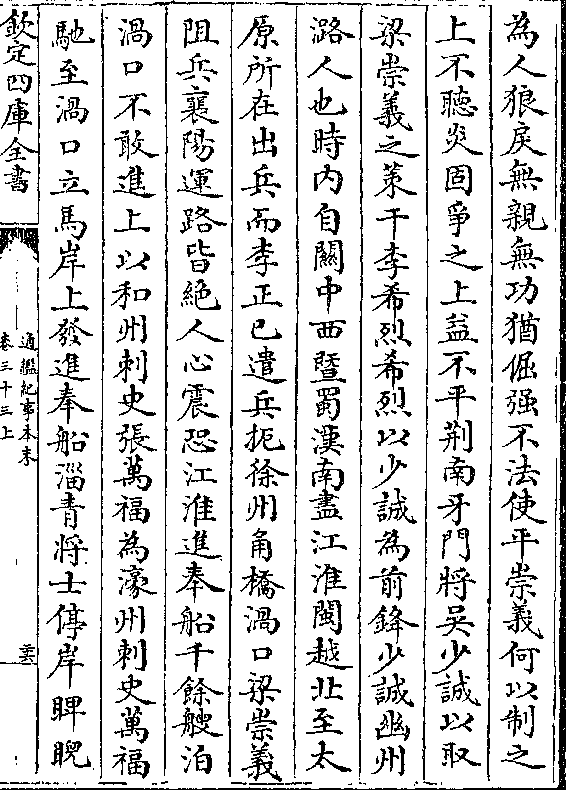 為人狼戾無親無功猶倔强不法使平崇義何以制之
上不聽炎固爭之上益不平荆南牙門將吳少誠以取
梁崇義之策干李希烈希烈以少誠為前鋒少誠幽州
潞人也時内自關中西暨蜀漢南盡江淮閩越北至太
原所在出兵而李正已遣兵扼徐州甬橋渦口梁崇義
阻兵襄陽運路皆絶人心震恐江淮進奉船千餘艘泊
渦口不敢進上以和州刺史張萬福為濠州刺史萬福
馳至渦口立馬岸上發進奉船淄青將士停岸睥睨
欽定四庫全書
通鑑紀事本末
卷三十三上